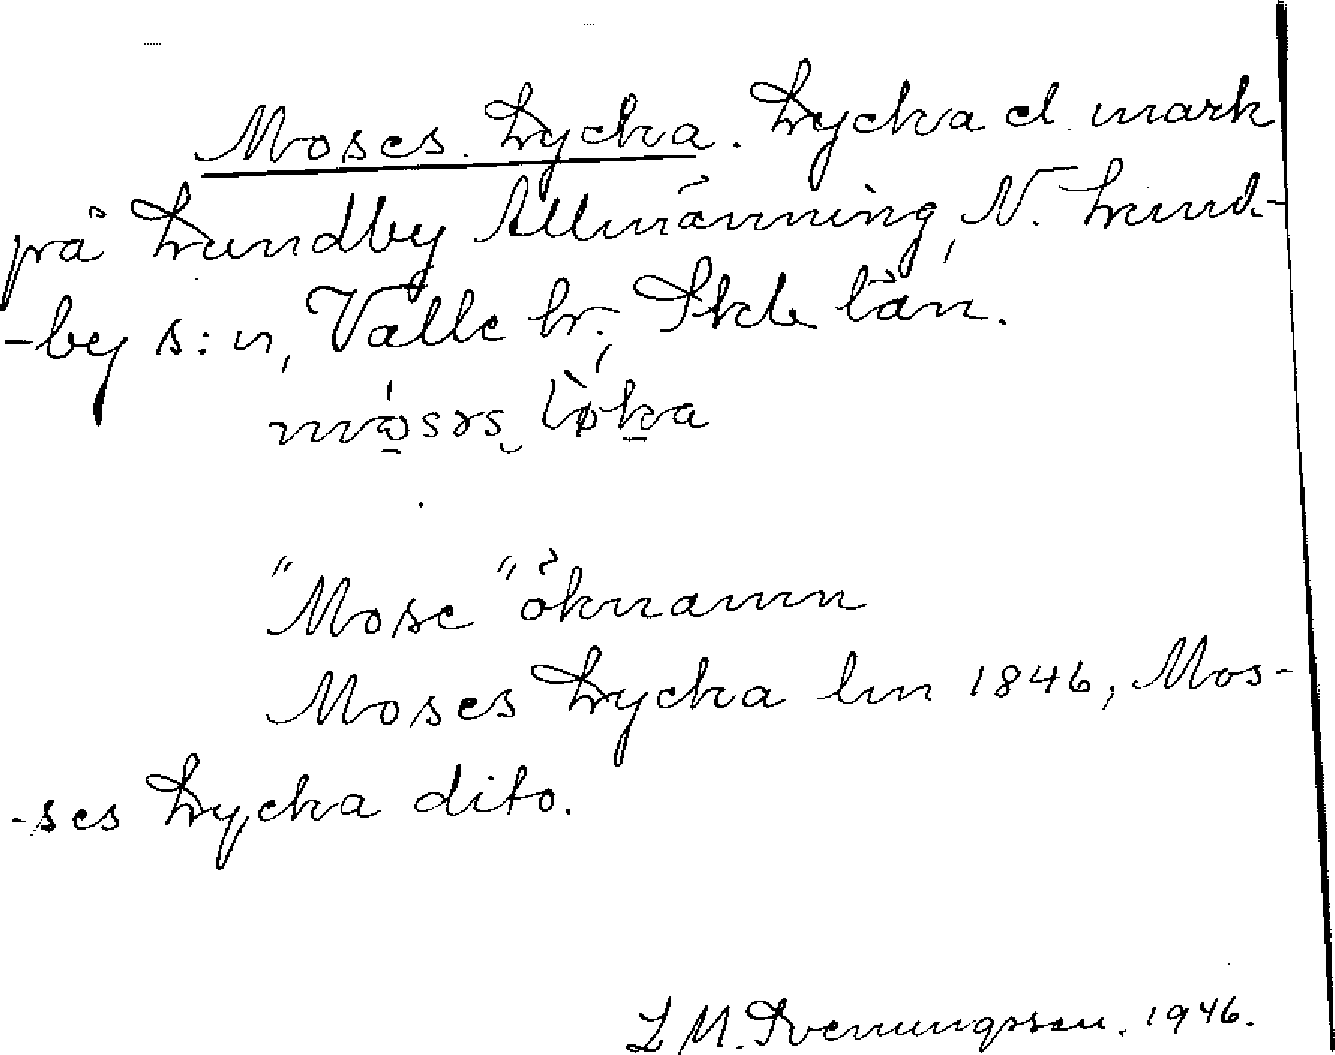 Moses Lycka. Lycka el. mark
på Lundby Allmänning, N. Lund-
-by s:n, Valle hr., Skb. län.
mósəs lø̀ka
"Mose" öknamn
Moses Lycka lm 1846, Mos-
-ses Lycka dito.
L M. Svenungsson. 1946.